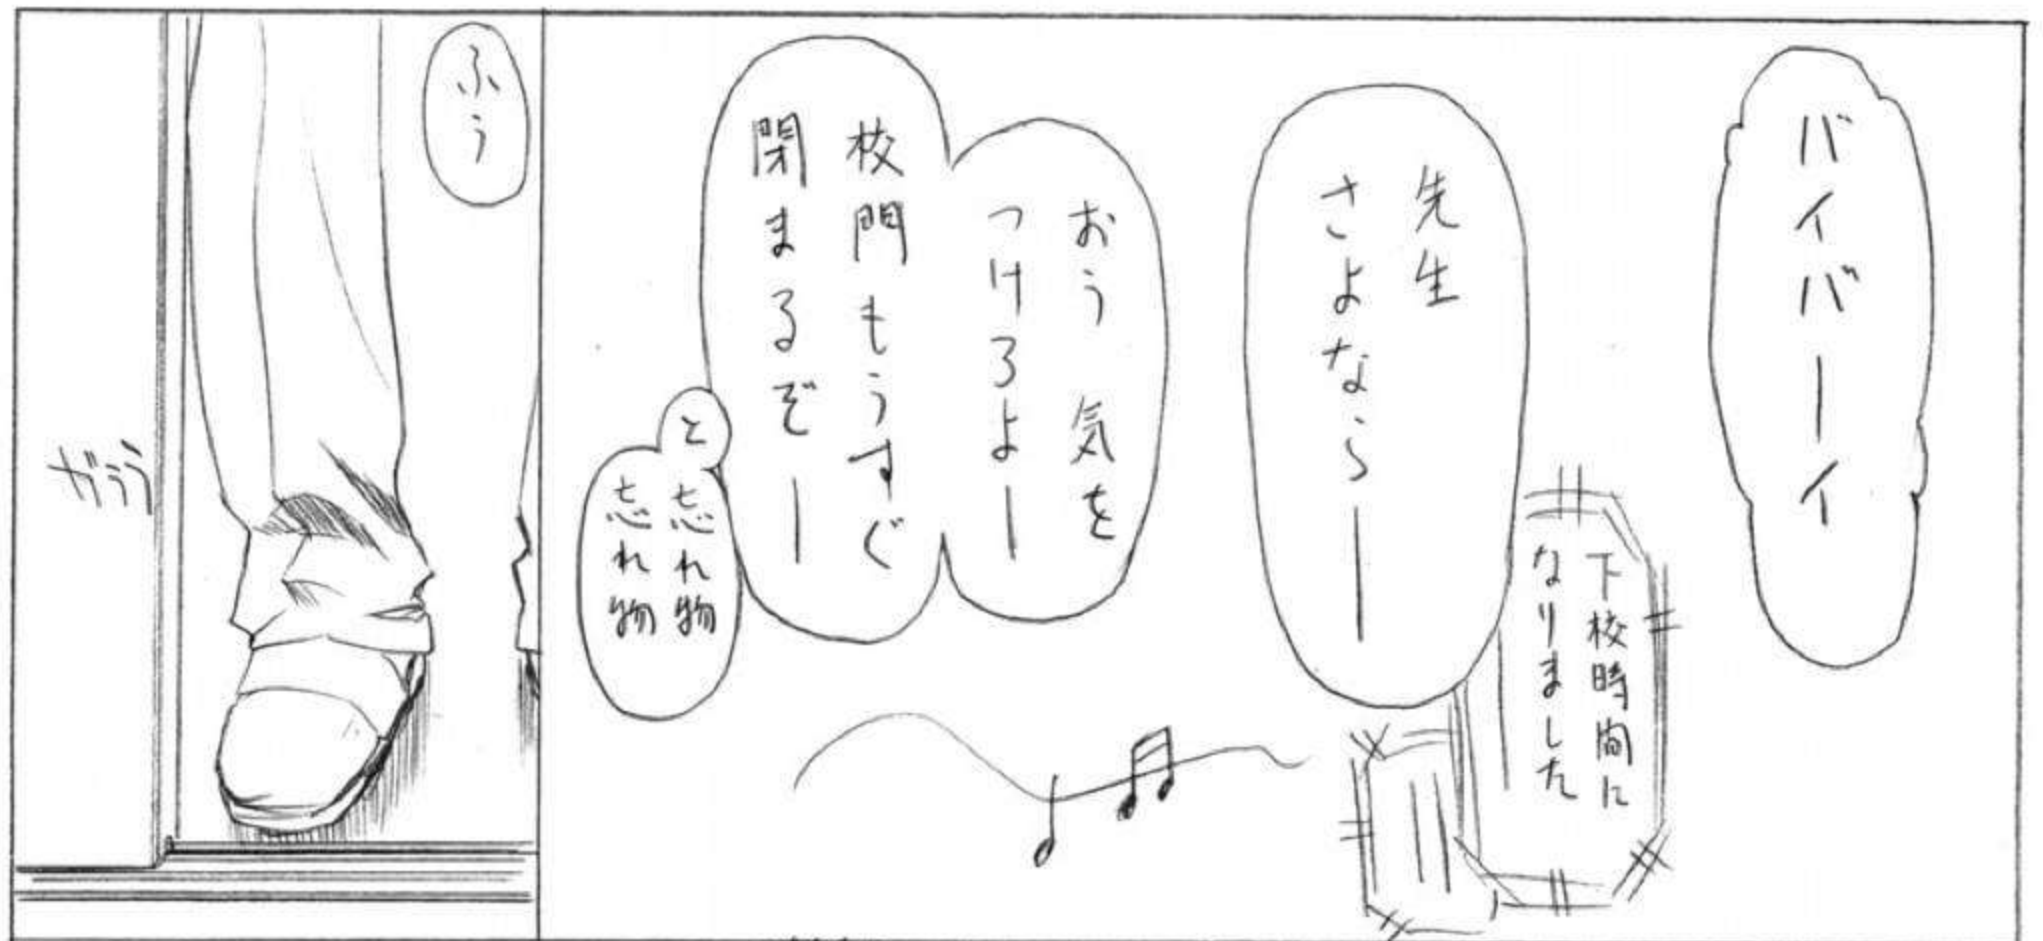 バイバーイ
下校時間に
なりました
先生
さよなら―
おう 気を
つけろよ―
校門もうすぐ
閉まるぞ―
と
忘れ物
忘れ物
ふぅ
ガララ